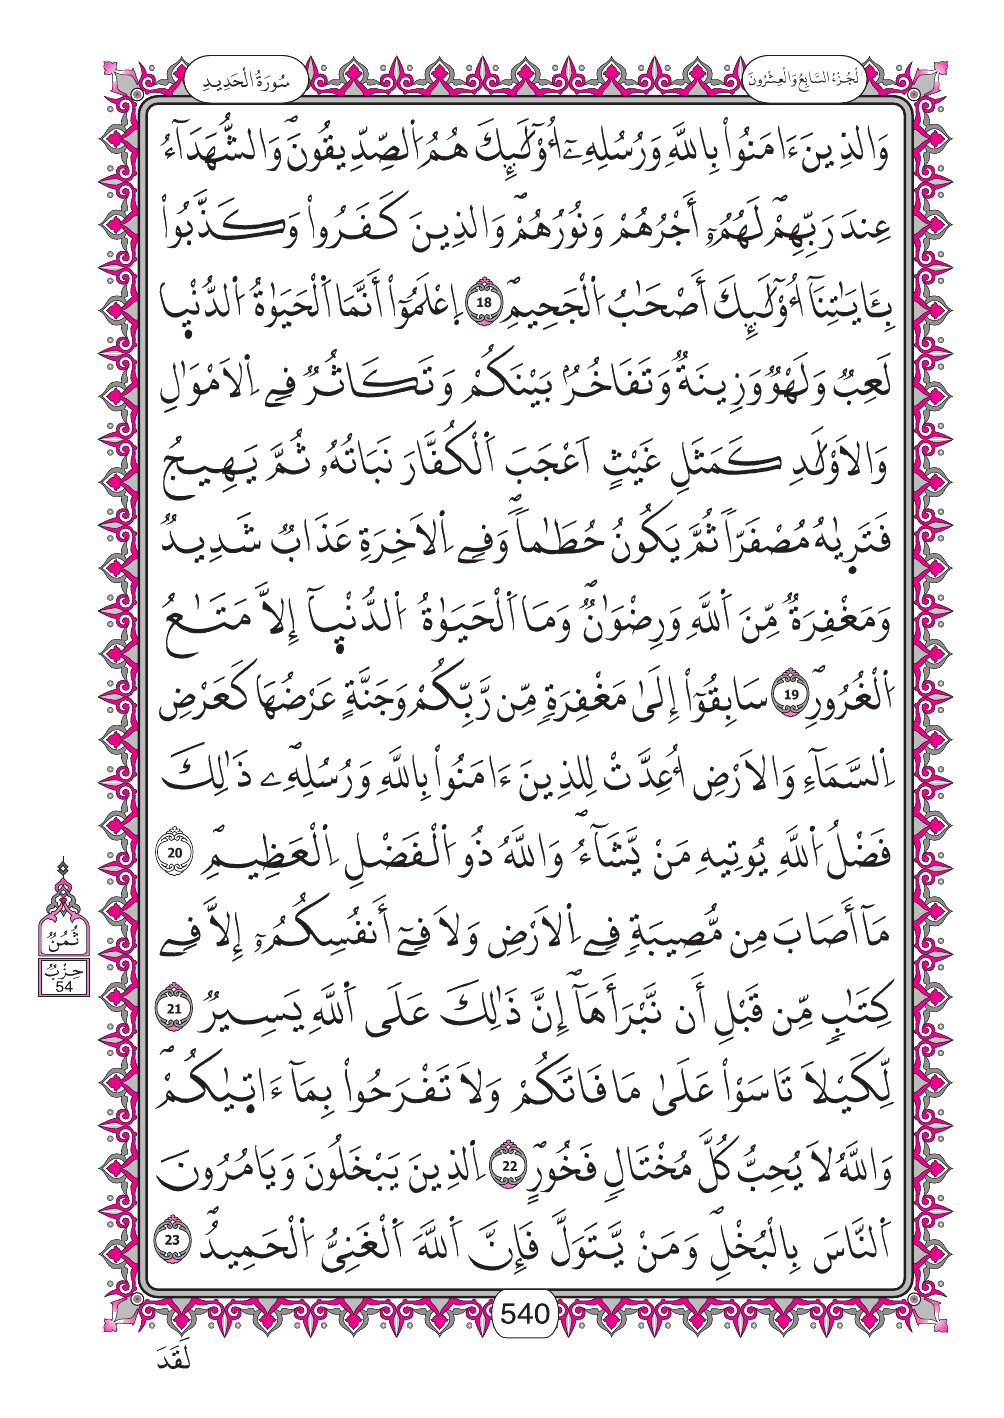 سُورَةُ الْحَدِيدِ
الْجُزْءُ السَّابِعُ وَالْعِشْرُونَ
وَالذِينَ ءَامَنُواْ بِاللَّهِ وَرُسُلِهِۦٓ أُوْلَٰٓئِكَ هُمُ اُلصِّدِّيقُونَۖ وَالشُّهَدَآءُ
عِندَ رَبِّهِمْۖ لَهُمُۥٓ أَجْرُهُمْ وَنُورُهُمْۖ وَالذِينَ كَفَرُواْ وَكَذَّبُواْ
بِـَٔايَٰتِنَآ أُوْلَٰٓئِكَ أَصْحَٰبُ اُلْجَحِيمِۖ 18 اِعْلَمُوٓاْ أَنَّمَا اَلْحَيَوٰةُ اُلدُّنْي۪ا
لَعِبٞ وَلَهْوٞ وَزِينَةٞ وَتَفَاخُرُۢ بَيْنَكُمْ وَتَكَاثُرٞ فِے اِلَامْوَٰلِ
وَالَاوْلَٰدِ كَمَثَلِ غَيْثٍ اَعْجَبَ اَلْكُفَّارَ نَبَاتُهُۥ ثُمَّ يَهِيجُ
فَتَر۪يٰهُ مُصْفَرّاٗ ثُمَّ يَكُونُ حُطَٰماٗۖ وَفِے اِلَاخِرَةِ عَذَابٞ شَدِيدٞ
وَمَغْفِرَةٞ مِّنَ اَللَّهِ وَرِضْوَٰنٞۖ وَمَا اَلْحَيَوٰةُ اُلدُّنْي۪آ إِلَّا مَتَٰعُ
اُلْغُرُورِۖ 19 سَابِقُوٓاْ إِلَىٰ مَغْفِرَةٖ مِّن رَّبِّكُمْ وَجَنَّةٍ عَرْضُهَا كَعَرْضِ
اِلسَّمَآءِ وَالَارْضِ أُعِدَّتْ لِلذِينَ ءَامَنُواْ بِاللَّهِ وَرُسُلِهِۦۖ ذَٰلِكَ
فَضْلُ اُللَّهِ يُوتِيهِ مَنْ يَّشَآءُۖ وَاللَّهُ ذُو اُلْفَضْلِ اِلْعَظِيمِۖ 20
مَآ أَصَابَ مِن مُّصِيبَةٖ فِے اِلَارْضِ وَلَا فِےٓ أَنفُسِكُمُۥٓ إِلَّا فِے
كِتَٰبٖ مِّن قَبْلِ أَن نَّبْرَأَهَآۖ إِنَّ ذَٰلِكَ عَلَى اَللَّهِ يَسِيرٞ 21
لِّكَيْلَا تَاسَوْاْ عَلَىٰ مَا فَاتَكُمْ وَلَا تَفْرَحُواْ بِمَآ ءَات۪يٰكُمْۖ
وَاللَّهُ لَا يُحِبُّ كُلَّ مُخْتَالٖ فَخُورٍۖ 22 اِلذِينَ يَبْخَلُونَ وَيَامُرُونَ
اَلنَّاسَ بِالْبُخْلِۖ وَمَنْ يَّتَوَلَّ فَإِنَّ اَللَّهَ اَلْغَنِىُّ اُلْحَمِيدُۖ 23
ثُمُنٌ
حِزْبٌ
54
540
لَقَدَ